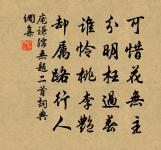 可惜花無主
分明枉過春
誰憐桃李艷
却屬路行人
龐謙孺無題二首詞典
網集